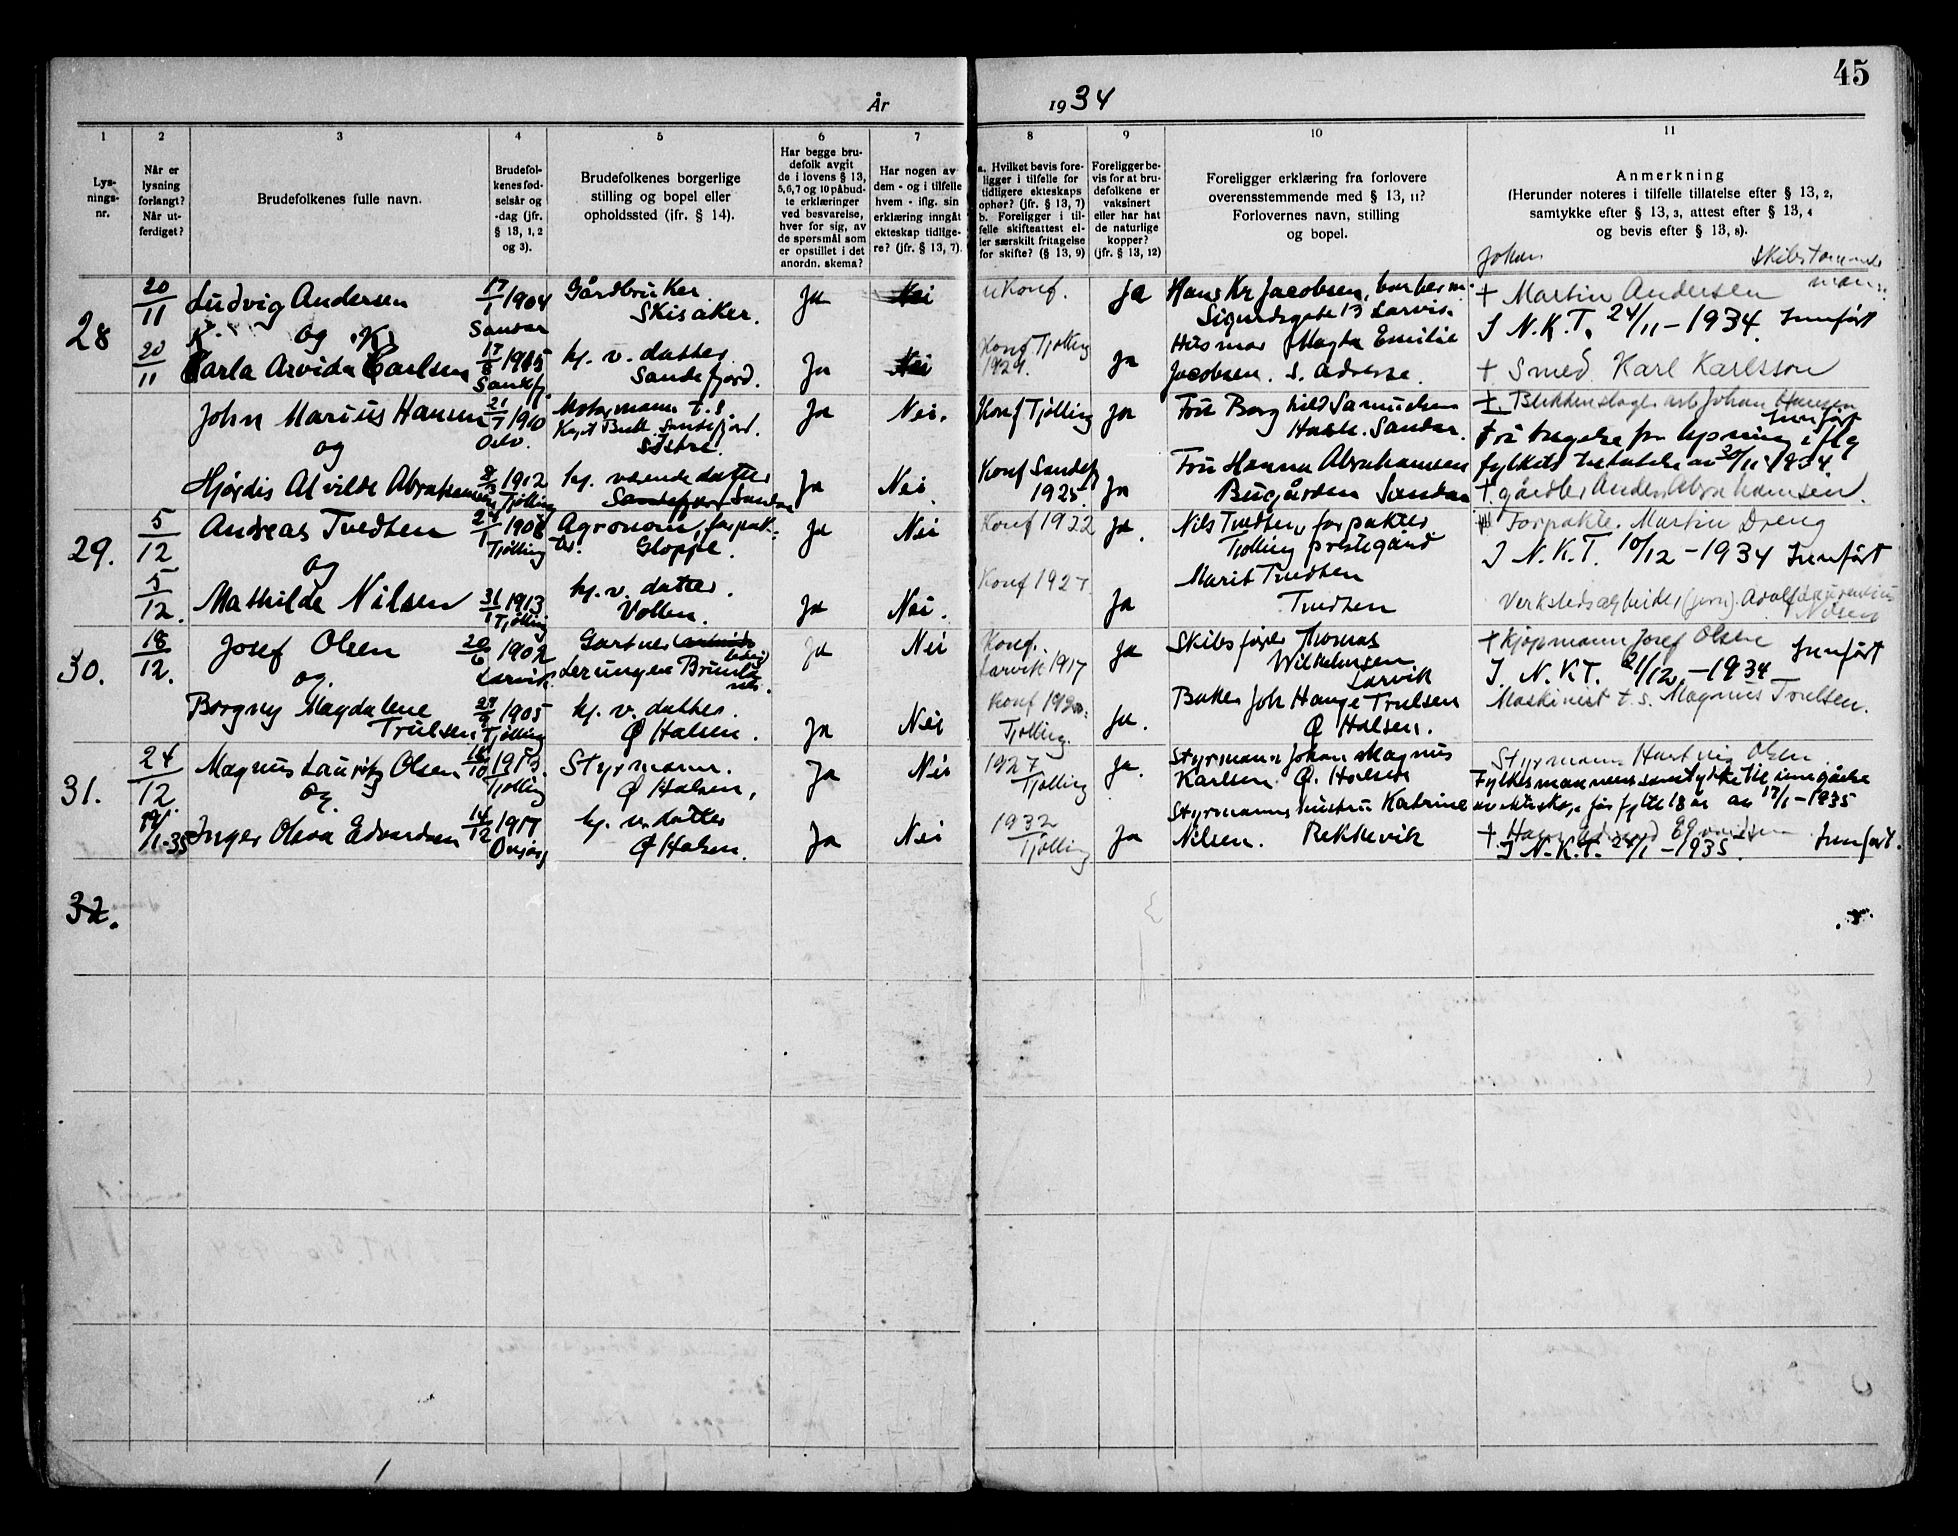 45
År 1934
1 2 3 4 5 6 7 8 9 10 11
Lys-
nings-
nr.
Når er
lysning
forlangt?
Når ut-
ferdiget?
Brudefolkenes fulle navn.
Brudefol-
kenes fød-
selsår og
-dag (jfr.
§ 13, 1, 2
og 3).
Brudefolkenes borgerlige
stilling og bopel eller
opholdssted (jfr. § 14).
Har begge bru-
defolk avgit
de i lovens § 13,
5,6,7 og 10 påbud-
te erklæringer
ved besvarelse,
hver for sig, av
de spørsmål som
er opstillet i det
anordn. skema?
Har nogen av
dem - og i tilfelle
hvem - iflg. sin
erklæring inngåt
ekteskap tidlige-
re? (jfr. § 13, 7).
a. Hvilket bevis fore-
ligger i tilfelle for
tidligere ekteskaps
ophør? (jfr. § 13, 7)
b. Foreligger i til-
felle skifteattest el-
ler særskilt fritagelse
for skifte? (§ 13, 9)
Foreligger be-
vis for at bru-
defolkene er
vaksinert
eller har hat
de naturlige
kopper?
(jfr. § 13, 12)
Foreligger erklæring fra forlovere
overensstemmende med § 13, 11?
Forlovernes navn, stilling
og bopel.
Anmerkning
(Herunder noteres i tilfelle tillatelse efter § 13, 2,
samtykke efter § 13, 3, attest efter § 13, 4
og bevis efter § 13, 8).
Johan
28
20/11 Ludvig Andersen 17/1 1904 Gårdbruker Ja Nei Konf. Ja Hans Kr Jacobsen, + Martin Andersen
Sandar Skisaker. Sigurdsgate 13 Larvik. I N.K.T. 24/11-1934. Innført
K. og K.
20/11 Carla Arvida Carlsen Sandefj. hj. v. datter Sandefjord. Ja Nei Konf Tjølling 1929. Ja Husmor Magda Emilie
Jacobsen. s. adresse. + Smed Karl Karlsson
John Marius Hansen 21/7 1910 Oslo. Motormann t.s. Sandefjord. Ja Nei. Konf Tjølling Ja Fru Borghild Samuelsen Sandar. Johan Hansen
og Innført
Hjørdis Alvilde Abrahamsen 1912 Tjølling hj. værende datter Sandefjord Sandar Ja Nei. Konf Sandefj 1925 Ja Fru Hanna Abrahamsen
Bugården Sandar 30/11 1934.
+ gårdbr Anders Abrahamsen.
29.
5/12 Andreas Tvedten 24/1 1908 Tjølling Agronom, forpak-
ter. Gloppe. Ja Nei Konf 1922 Ja. Nils Tvedten, forpakter
Tjølling prestegård Forpakte. Martin Dreng
og I N.K.T. 10/12-1934 Innført
5/12. Mathilde Nilsen 31/1 1913 Tjølling hj. v. datter. Vollen. Ja Nei. Konf 1927 Ja Marit Tvedten
Tvedten Verkstedsarbeider (jern). Adolf Laurentius Nilsen
30.
18/12. Josef Olsen 20/6 1902 Larvik. Gartner Ja Nei Konf. Larvik 1917 Ja Skibsfører Thomas
Wilhelmsen Larvik + Kjøpmann Josef Olsen
og. I. N.K.T. 21/12.-1934 Innført
Borgny Magdalene
Trulsen 1905 Tjølling hj. v. datter. Ø Halsen. Ja Nei Konf Tjølling. Ja. Baker Joh Hauge Trulsen
Ø Halsen. Maskinist t.s. Magnus Trulsen.
31.
24/12 Magnus Lauritz Olsen Tjølling Styrmann. Ø Halsen, Ja Nei 1927 Tjølling Ja. Styrmann Johan Magnus
Karlsen. Ø. Halsen Styrmann Hartvig Olsen
og. Fylkesmannens samtykke til inngåelse
av ekteskap før fylte 18 år av 17/1-1935
/1-35 Inger Olava Edvardsen 14/12 1917 hj. v. datter Ø Halsen. Ja Nei 1932 Tjølling Ja Styrmanns hustru Katrine
Nilsen. Rekkevik I N.K.T. 24/1-1935. Innført.
32.